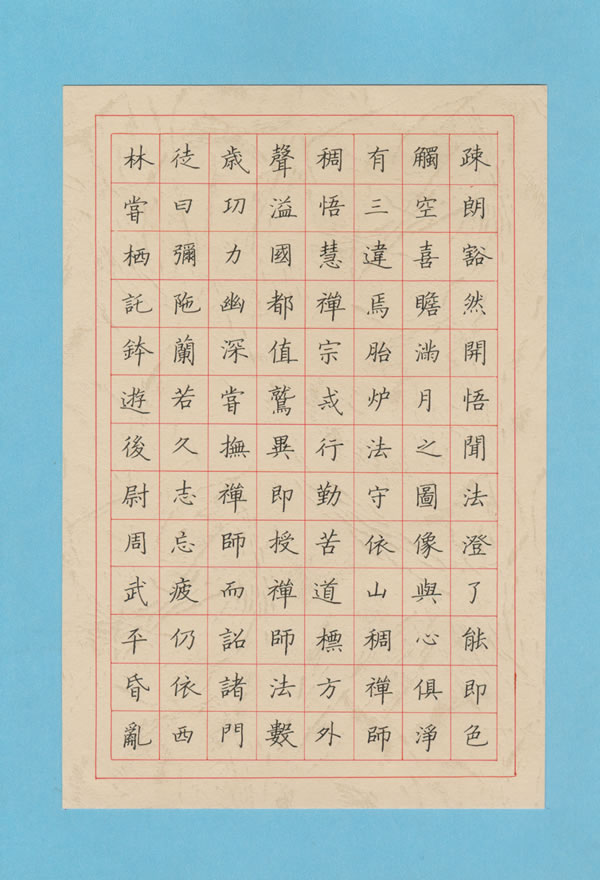 疎朗豁然開悟聞法澄了能即色
觸空喜瞻滿月之圖像與心俱淨
有三違焉胎炉法守依山稠禪師
稠悟慧禪宗戎行勤苦道標方外
聲溢國都值鷲異即授禪師法數
歳功力幽深嘗撫禪師而詔諸門
徒曰彌陁蘭若久志忘疲仍依西
林嘗栖託鉢遊後尉周武平昏亂